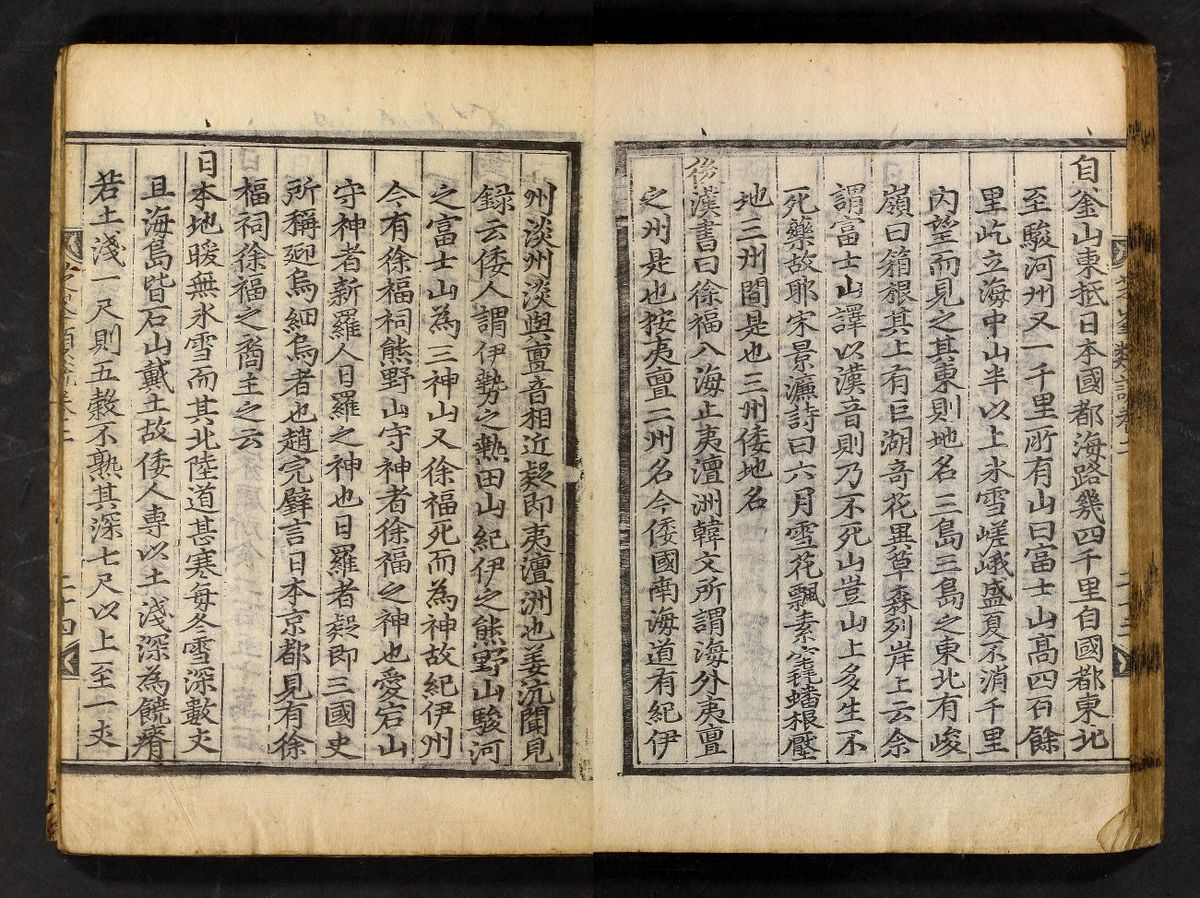 自釜山東抵日本國都海路幾四千里自國都東北
至駿河州又一千里所有山曰富士山高四百餘
里屹立海中山半以上氷雪嵯峨盛夏不消千里
內望而見之其東則地名三島三島之東北有峻
嶺曰箱根其上有巨湖奇花異草森列岸上云余
謂富士山譯以漢音則乃不死山豈山上多生不
死藥故耶宋景濂詩曰六月雪花飄素毳蟠根壓
地三州間是也三州倭地名
後漢書曰徐福入海止夷澶洲韓文所謂海外夷亶
之州是也按夷亶二州名今倭國南海道有紀伊
州淡州淡與亶音相近疑即夷澶洲也姜沆聞見
録云倭人謂伊勢之熱田山紀伊之熊野山駿河
之富士山為三神山又徐福死而為神故紀伊州
今有徐福祠熊野山守神者徐福之神也愛宕山
守神者新羅人日羅之神也日羅者疑即三國史
所稱迎烏細烏者也趙完璧言日本京都見有徐
福祠徐福之裔主之云
日本地暖無氷雪而其北陸道甚寒每冬雪深數丈
且海島皆石山戴土故倭人專以土淺深為饒瘠
若土淺一尺則五穀不熟其深七尺以上至一丈
二十四